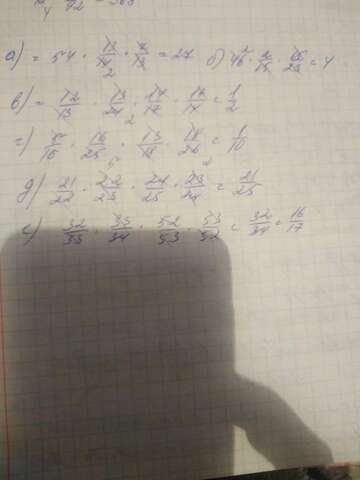 а) = 54 · 13/14 · 7/13 = 27 б) 46 · 2/15 · 15/23 = 4
в) = 12/13 · 13/24 · 14/17 · 17/14 = 1/2
г) 15 · 16/25 · 13/18 · 18/26 = 1/10
д) 21/22 · 22/23 · 24/25 · 23/24 = 21/25
е) 32/33 · 33/34 · 52/53 · 53/52 = 32/34 = 16/17